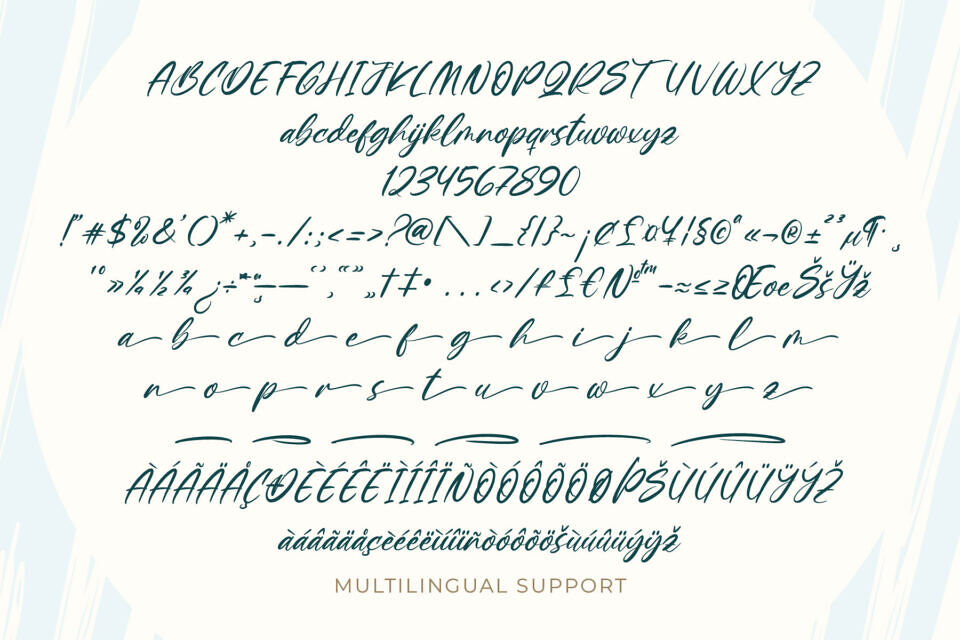 ABCDEFGHIJKLMNOPQRSTUVWXYZ
abcdefghijklmnopqrstuvwxyz
1234567890
!"#$%&'()*+,-./:;<=>?@[\]_{|}~¡¢£¤¥¦§©ª«¬®±²³µ¶·¸
¹º»¼½¾¿÷
†‡•...‹›/ƒ£€№™−≈≤≥ŒœŠšŸž
a b c d e f g h i j k l m
n o p r s t u v w x y z
ÀÁÃÄÅÇÐÈÉÊËÌÍÎÏÑÒÓÔÕÖØÞŠÙÚÛÜŸÝŽ
àáâãäåçèéêëìíîïñòóôõöšùúûüýÿž
MULTILINGUAL SUPPORT